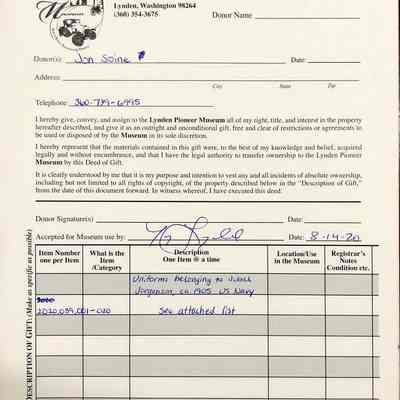 Lynden, Washington 98264
(360) 354-3675
Donor Name
Donor(s): Jon Soine
Date:
Address:
City State Zip
Telephone: 360-739-6995
I hereby give, convey, and assign to the Lynden Pioneer Museum all of my right, title, and interest in the property
hereafter described, and give it as an outright and unconditional gift, free and clear of restrictions or agreements to
be used or disposed of by the Museum in its sole discretion.
I hereby represent that the materials contained in this gift were, to the best of my knowledge and belief, acquired
legally and without encumbrance, and that I have the legal authority to transfer ownership to the Lynden Pioneer
Museum by this Deed of Gift.
It is clearly understood by me that it is my purpose and intention to vest any and all incidents of absolute ownership,
including but not limited to all rights of copyright, of the property described below in the "Description of Gift,"
from the date of this document forward. In witness whereof, I have executed this deed.
Donor Signature(s) Date:
Accepted for Museum use by: Date: 8-14-20
DESCRIPTION OF GIFT: (Make as specific as possible)
Item Number
one per Item
What is the
Item
/Category
Description
One Item @ a time
Location/Use
in the Museum
Registrar's
Notes
Condition etc.
Uniforms belonging to
Jorgenson, ca. 1905 US Navy
2020.059.001-020 See attached list